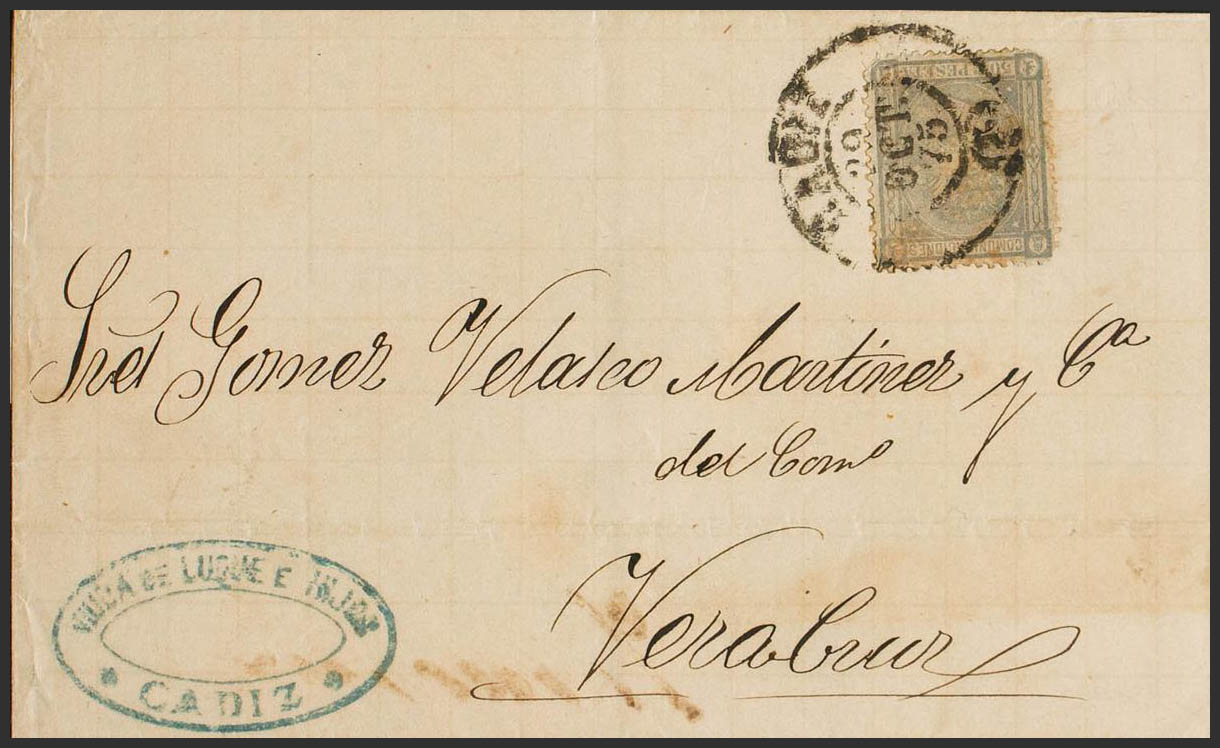 CADIZ
29
OCT.
75
50 C. PESETA
COMUNICACIONES
Sres Gomez Velasco Martinez y Ca
del Como
Vera Cruz
VIUDA DE LUQUE E HIJOS
CADIZ